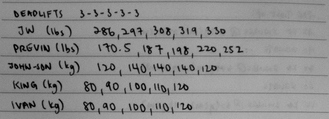 DEADLIFTS 3-3-3-3-3
JW (lbs) 286, 297, 308, 319, 330
PRGVIN (lbs) 170.5, 187, 198, 220, 252
JOHN-SON (kg) 120, 140, 140, 140, 120
KING (kg) 80, 90, 100, 110, 120
IVAN (kg) 80, 90, 100, 110, 120